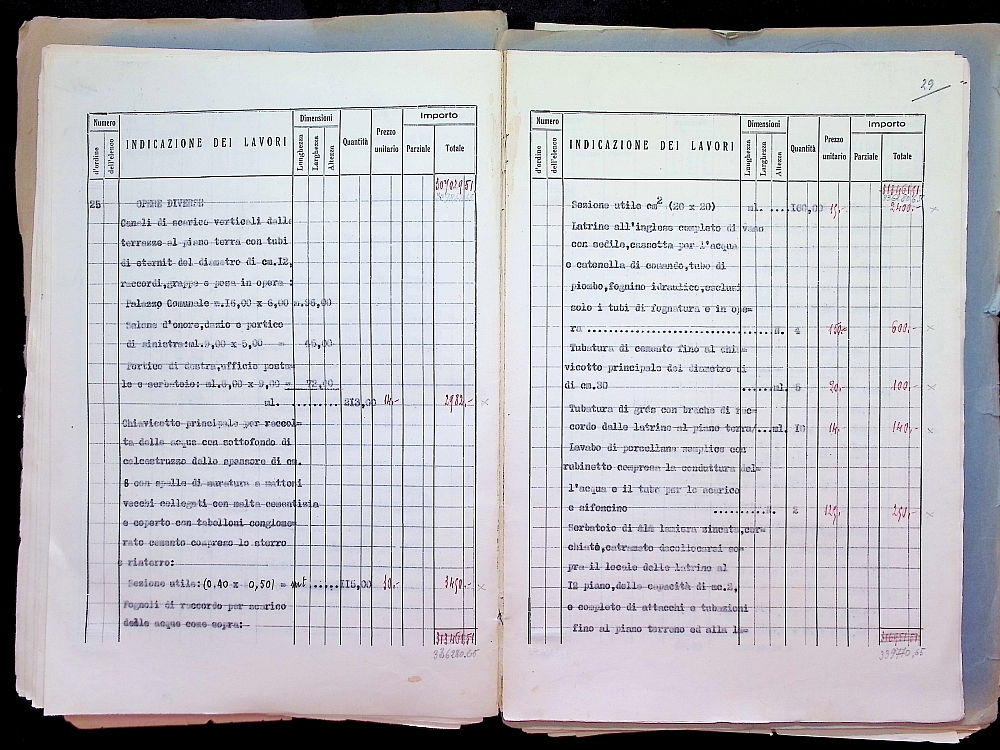 Numero
d'ordine
dell'elenco
INDICAZIONE DEI LAVORI
Dimensioni
Lunghezza
Larghezza
Altezza
Quantità
Prezzo unitario
Importo
Parziale
Totale
25 OPERE DIVERSE
Canali di scarico verticali dalle
terrazze al piano terra con tubi
di eternit del diametro di cm.I2,
raccordi,grappe e posa in opera :
Palazzo Comunale m.I6,00 x 6,00 m.96,00
Salone d'onore,dazio e portico
di sinistra:ml.9,00 x 5,00 = 45,00
Portico di destra,ufficio posta=
le e serbatoio: ml.8,00 x 9,00 = 72,00
ml. ......... 213,00 14,- 2982,-
Chiavicotto principale per raccol=
ta delle acque con sottofondo di
calcestruzzo dello spessore di cm.
8 con spalle di muratura a mattoni
vecchi collegati con malta cementizia
e coperto con tabelloni conglome=
rato cemento compreso lo sterro
e rinterro:
Sezione utile:(0,40 x 0,50) = mt......II5,00 30,- 3450,-
Fognoli di raccordo per scarico
delle acque come sopra:
336280.65
29
Numero
d'ordine
dell'elenco
INDICAZIONE DEI LAVORI
Dimensioni
Lunghezza
Larghezza
Altezza
Quantità
Prezzo unitario
Importo
Parziale
Totale
Sezione utile cm² (20 x 20) ml. ....I60,00 15,- 2400,-
Latrine all'inglese completo di vaso
con sedile,cassetta per l'acqua
e catenella di comando,tubo di
piombo,fognino idraulico,esclusi
solo i tubi di fognatura e in ope=
ra ............................... N. 4 150,- 600,-
Tubatura di cemento fino al chia=
vicotto principale del diametro di
di cm.30 ......ml. 5 20,- 100,-
Tubatura di grés con brache di rac=
cordo dalle latrine al piano terra/...ml. I0 14,- 140,-
Lavabo di porcellana semplice con
rubinetto compresa la conduttura del=
l'acqua e il tubo per lo scarico
e sifoncino ..........N. 2 125,- 250,-
Serbatoio di lamiera zincata,cer=
chiato,catramato dacollocarsi so=
pra il locale delle latrine al
I2 piano,della capacità di mc.2,
e completo di attacchi e tubazioni
fino al piano terreno ed alla la=
339770,65